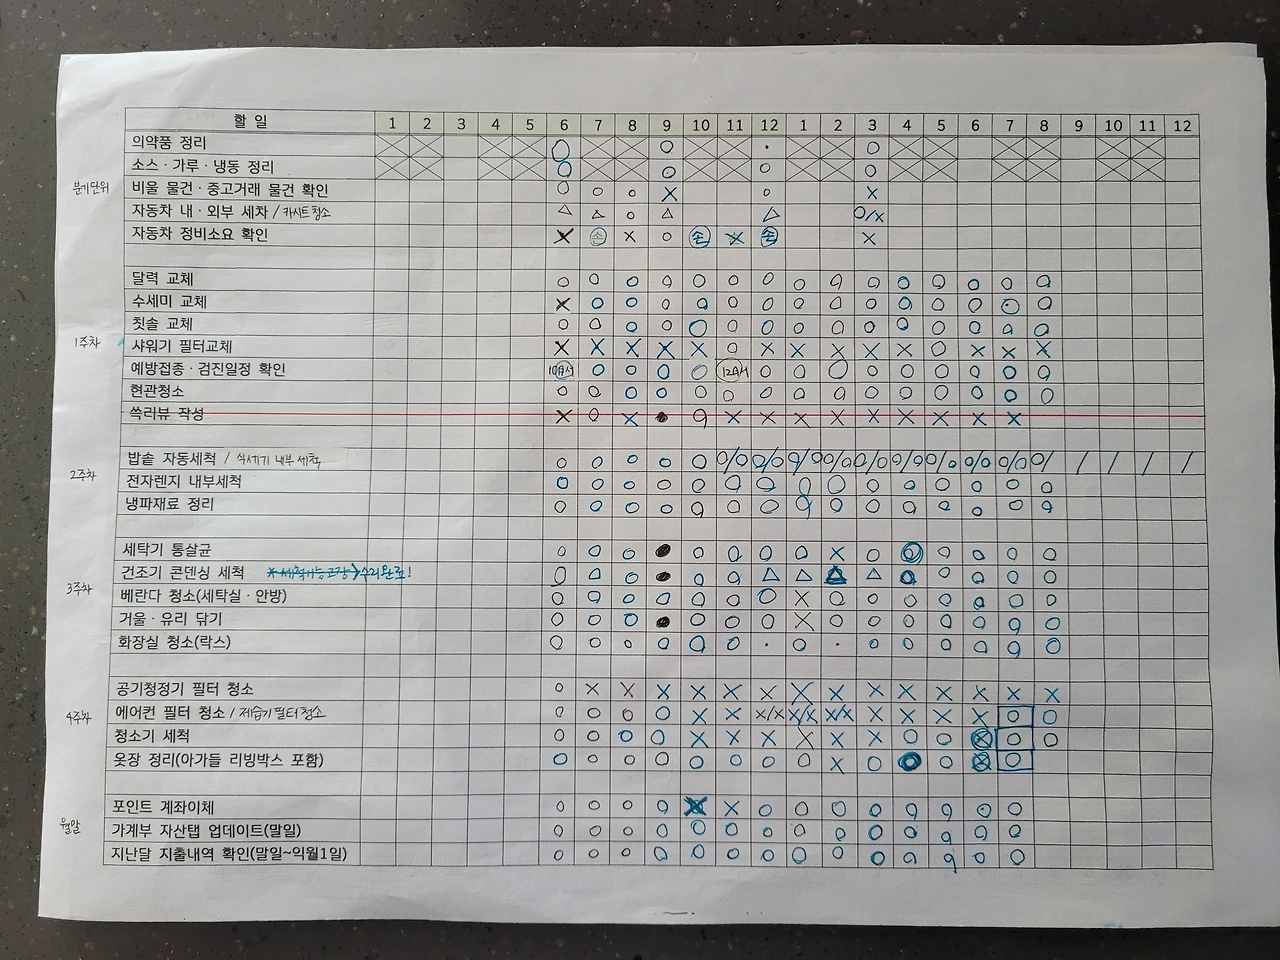 할 일 1 2 3 4 5 6 7 8 9 10 11 12 1 2 3 4 5 6 7 8 9 10 11 12
의약품 정리 ○ ○ · ○
소스·가루·냉동 정리 ○ ○ ○ ○
분기단위
비울 물건·중고거래 물건 확인 ○ ○ ○ X ○ X
자동차 내·외부 세차 / 카시트청소 △ △ ○ △ △ ○/x
자동차 정비소요 확인 X 손 X ○ 손 X 손 X
달력 교체 ○ ○ ○ ○ ○ ○ ○ ○ ○ ○ ○ ○ ○ ○ ○
수세미 교체 X ○ ○ ○ ○ ○ ○ ○ ○ ○ ○ ○ ○ ○ ○
칫솔 교체 ○ ○ ○ ○ ○ ○ ○ ○ ○ ○ ○ ○ ○ ○ ○
1주차
샤워기 필터교체 X X X X X ○ X X X X X ○ X X X
예방접종·검진일정 확인 10월 ○ ○ ○ ○ 12월 ○ ○ ○ ○ ○ ○ ○ ○ ○
현관청소 ○ ○ ○ ○ ○ ○ ○ ○ ○ ○ ○ ○ ○ ○ ○
쓱리뷰 작성 X ○ X ● ○ X X X X X X X X X
밥솥 자동세척 / 식세기 내부 세척 ○ ○ ○ ○ ○ ○/○ ○/○ ○/○ ○/○ ○/○ ○/○ ○/○ ○/○ ○/○ ○/ / / / /
2주차
전자렌지 내부세척 ○ ○ ○ ○ ○ ○ ○ ○ ○ ○ ○ ○ ○ ○ ○
냉파재료 정리 ○ ○ ○ ○ ○ ○ ○ ○ ○ ○ ○ ○ ○ ○ ○
세탁기 통살균 ○ ○ ○ ● ○ ○ ○ ○ X ○ ◎ ○ ○ ○ ○
건조기 콘덴싱 세척 *세척기능고장→수리완료! ○ ○ ○ ● ○ ○ △ △ △ △ ○ ○ ○ ○ ○
3주차
베란다 청소(세탁실·안방) ○ ○ ○ ○ ○ ○ ○ X ○ ○ ○ ○ ○ ○ ○
거울·유리 닦기 ○ ○ ○ ● ○ ○ ○ X ○ ○ ○ ○ ○ ○ ○
화장실 청소(락스) ○ ○ ○ ○ ○ ○ · ○ · ○ ○ ○ ○ ○ ○
공기청정기 필터 청소 ○ X X X X X X X X X X X X X X
4주차
에어컨 필터 청소 / 제습기필터청소 ○ ○ ○ ○ X X X/X X/X X/X X X X X ○ ○
청소기 세척 ○ ○ ○ ○ X X X X X X ○ ○ ⊗ ○ ○
옷장 정리(아가들 리빙박스 포함) ○ ○ ○ ○ ○ ○ ○ ○ X ○ ○ ○ ⊗ ○
포인트 계좌이체 ○ ○ ○ ○ X X ○ ○ ○ ○ ○ ○ ○ ○
월말
가계부 자산탭 업데이트(말일) ○ ○ ○ ○ ○ ○ ○ ○ ○ ○ ○ ○ ○ ○
지난달 지출내역 확인(말일~익월1일) ○ ○ ○ ○ ○ ○ ○ ○ ○ ○ ○ ○ ○ ○